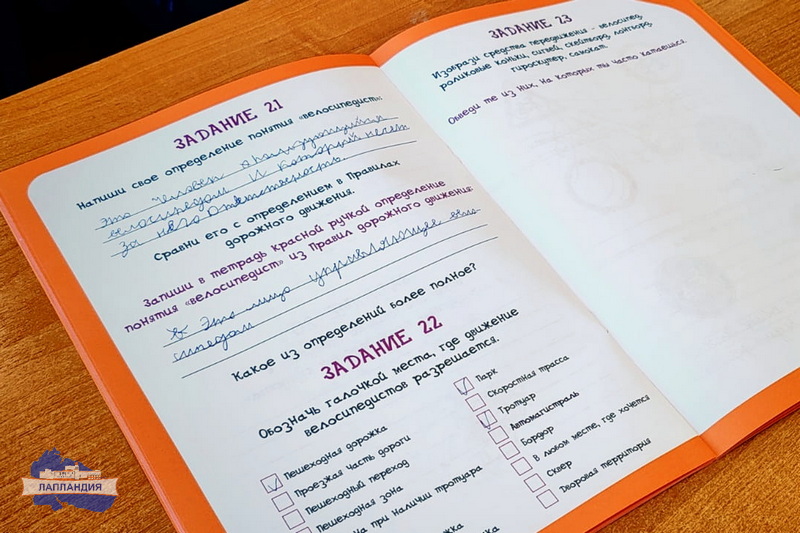 ЗАДАНИЕ 21
Напиши своё определение понятия «велосипедист»:
это человек
велосипедом и который несёт
за него ответственность.
Сравни его с определением в Правилах
дорожного движения.
Запиши в тетрадь красной ручкой определение
понятия «велосипедист» из Правил дорожного движения:
Это лицо управляющее вело
сипедом
Какое из определений более полное?
ЗАДАНИЕ 22
Обозначь галочкой места, где движение
велосипедистов разрешается.
Пешеходная дорожка
Проезжая часть дороги
Пешеходный переход
Пешеходная зона
на при наличии тротуара
жка
Парк
Скоростная трасса
Тротуар
Автомагистраль
Бордюр
В любом месте, где хочется
Сквер
Дворовая территория
ЗАДАНИЕ 23
Изобрази средства передвижения - велосипед,
роликовые коньки, сигвей, скейтборд, лонгборд,
гироскутер, самокат.
Обведи те из них, на которых ты часто катаешься.
ЛАПЛАНДИЯ